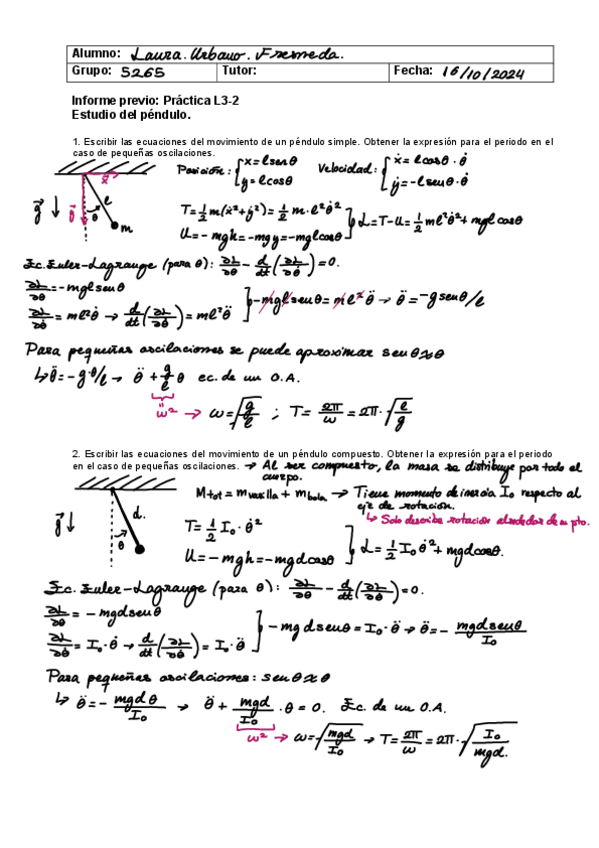 Alumno: Laura Urbano Fresneda.
Grupo: 5265 Tutor: Fecha: 16/10/2024
Informe previo: Práctica L3-2
Estudio del péndulo.
1. Escribir las ecuaciones del movimiento de un péndulo simple. Obtener la expresión para el periodo en el
caso de pequeñas oscilaciones.
Posición: {x = l senθ Velocidad: {ẋ = l cosθ · θ̇
y = l cosθ ẏ = -l senθ · θ̇
x
g⃗ ↓ y θ l m
T = 1/2 m(ẋ² + ẏ²) = 1/2 m · l² θ̇²
U = - mgh = -mgy = -mgl cosθ
L = T - U = 1/2 ml² θ̇² + mgl cosθ
Ec. Euler-Lagrange (para θ): ∂L/∂θ - d/dt(∂L/∂θ̇) = 0.
∂L/∂θ = -mgl senθ
∂L/∂θ̇ = ml² θ̇ → d/dt(∂L/∂θ̇) = ml² θ̈
-mgl senθ = ml² θ̈ → θ̈ = -g senθ/l
Para pequeñas oscilaciones se puede aproximar senθ ≈ θ
↳ θ̈ = -g·θ/l → θ̈ + g/l θ ec. de un O.A.
ω² → ω = √(g/l) ; T = 2π/ω = 2π·√(l/g)
2. Escribir las ecuaciones del movimiento de un péndulo compuesto. Obtener la expresión para el periodo
en el caso de pequeñas oscilaciones. → Al ser compuesto, la masa se distribuye por todo el
cuerpo.
Mtot = mvarilla + mbola → Tiene momento de inercia I₀ respecto al
eje de rotación.
↳ Solo describe rotación alrededor de un pto.
g⃗ ↓ θ d.
T = 1/2 I₀ · θ̇²
U = - mgh = -mgd cosθ
L = 1/2 I₀ θ̇² + mgd cosθ.
Ec. Euler-Lagrange (para θ): ∂L/∂θ - d/dt(∂L/∂θ̇) = 0.
∂L/∂θ = - mgd senθ
∂L/∂θ̇ = I₀ · θ̇ → d/dt(∂L/∂θ̇) = I₀ · θ̈
- mg d senθ = I₀ · θ̈ → θ̈ = - mgd senθ/I₀
Para pequeñas oscilaciones: senθ ≈ θ
↳ θ̈ = - mgd θ/I₀ → θ̈ + mgd/I₀ · θ = 0. Ec. de un O.A.
ω² → ω = √(mgd/I₀) → T = 2π/ω = 2π·√(I₀/mgd).